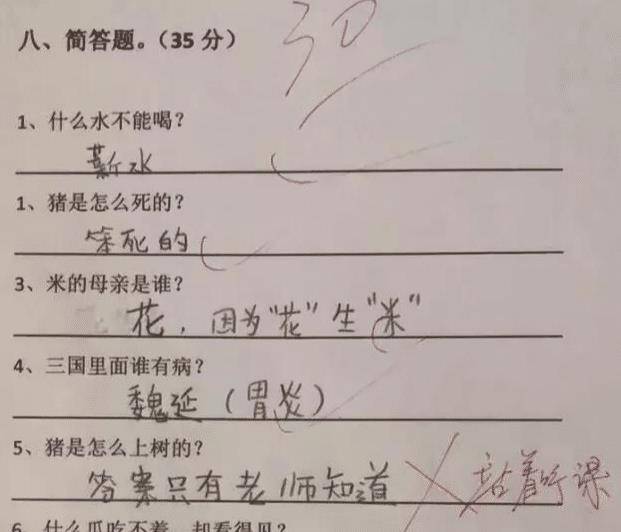 八、简答题。（35 分）
30
1、什么水不能喝？
薪水
1、猪是怎么死的？
笨死的
3、米的母亲是谁？
花，因为"花"生"米"
4、三国里面谁有病？
魏延（胃炎）
5、猪是怎么上树的？
答案只有老师知道 站着听课
6、什么瓜吃不着，却看得见？